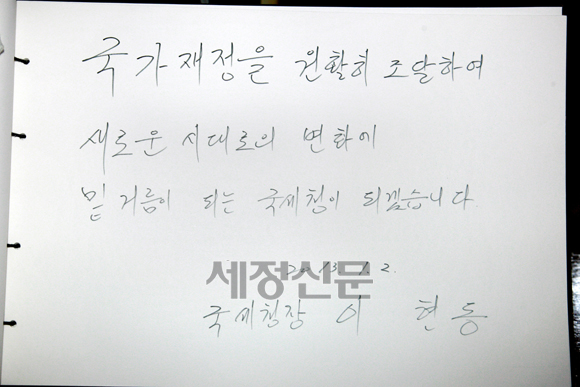 국가재정을 원활히 조달하여
새로운 시대로의 변화에
밑거름이 되는 국세청이 되겠습니다.
2013. 1. 2.
세정신문
국세청장 이 현동